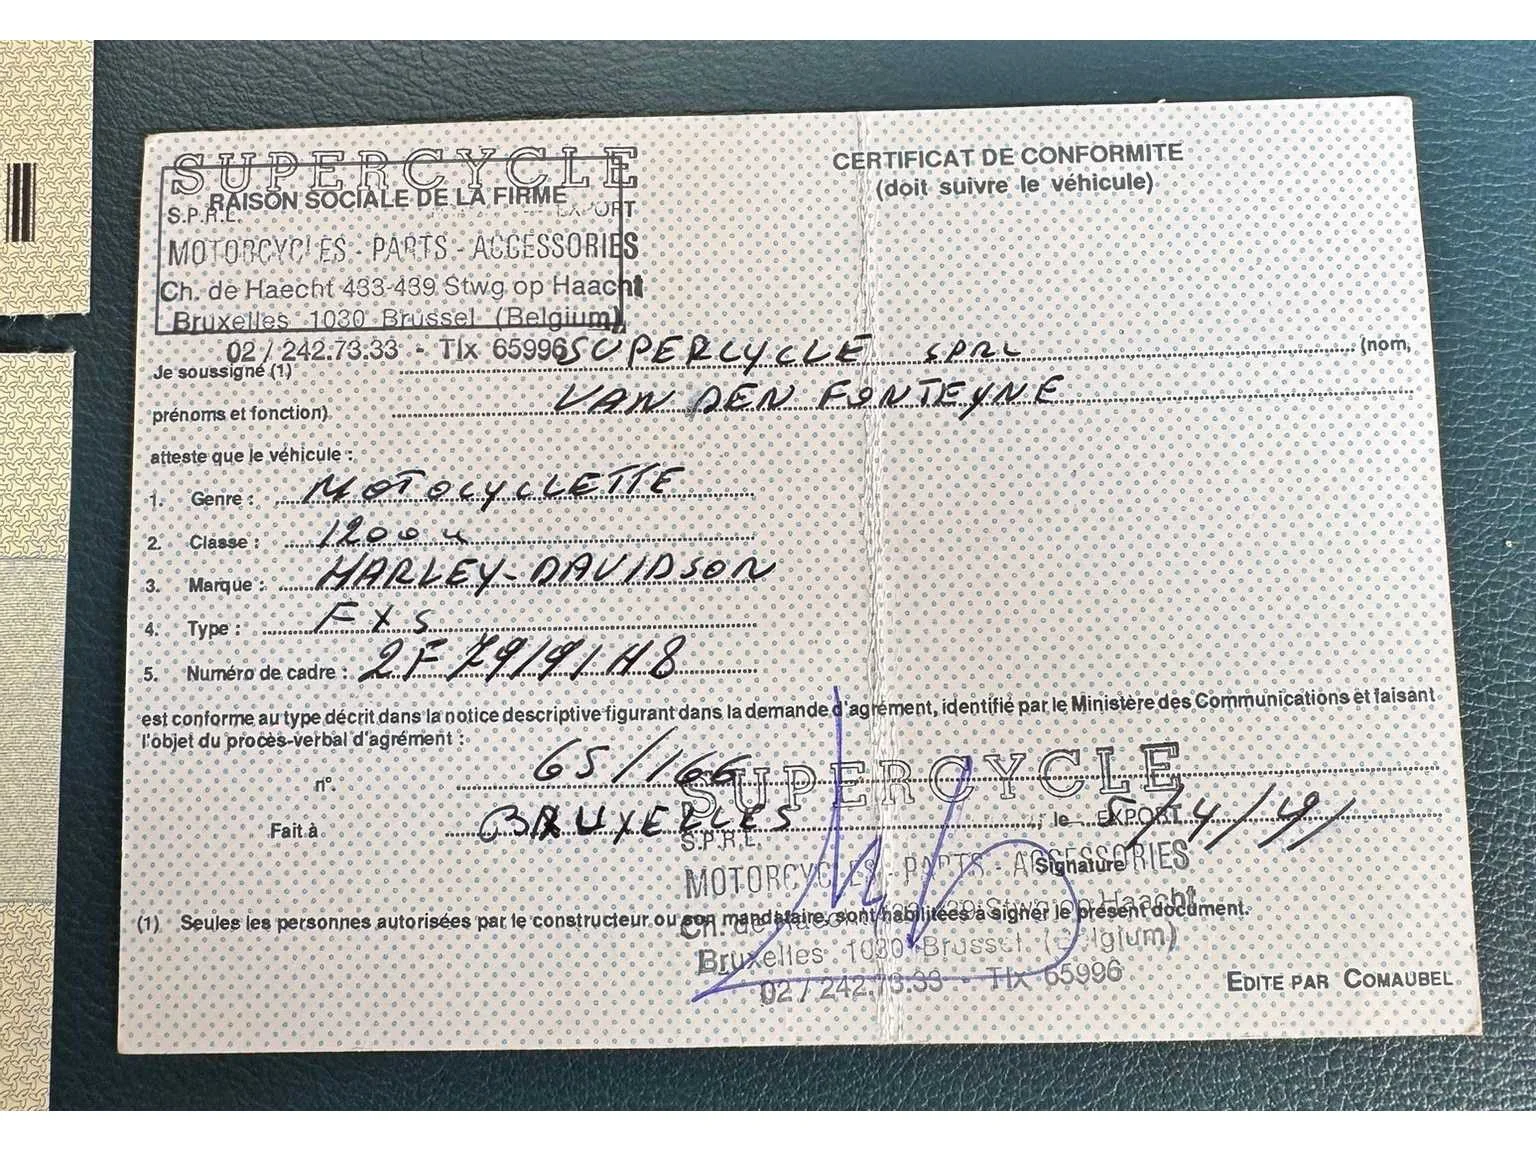 SUPERCYCLE
RAISON SOCIALE DE LA FIRME
S.P.R.L. EXPORT
MOTORCYCLES - PARTS - ACCESSORIES
Ch. de Haecht 433-439 Stwg op Haacht
Bruxelles 1030 Brussel (Belgium)
02 / 242.73.33 - Tlx 65996
CERTIFICAT DE CONFORMITE
(doit suivre le véhicule)
Je soussigné (1) SUPERCYCLE SPRL (nom,
prénoms et fonction) VAN DEN FONTEYNE
atteste que le véhicule :
1. Genre : MOTOCYCLETTE
2. Classe : 1200
3. Marque : HARLEY-DAVIDSON
4. Type : FXS
5. Numéro de cadre : 2F79191H8
est conforme au type décrit dans la notice descriptive figurant dans la demande d'agrément, identifié par le Ministère des Communications et faisant
l'objet du procès-verbal d'agrément :
n°. 65/166
SUPERCYCLE
Fait à BRUXELLES, le 5/4/91
S.P.R.L. EXPORT
Signature
MOTORCYCLES - PARTS - ACCESSORIES
(1) Seules les personnes autorisées par le constructeur ou son mandataire, sont habilitées à signer le présent document.
Ch. de Haecht 433-439 Stwg op Haacht
Bruxelles 1030 Brussel (Belgium)
02 / 242.73.33 - Tlx 65996
EDITE PAR COMAUBEL